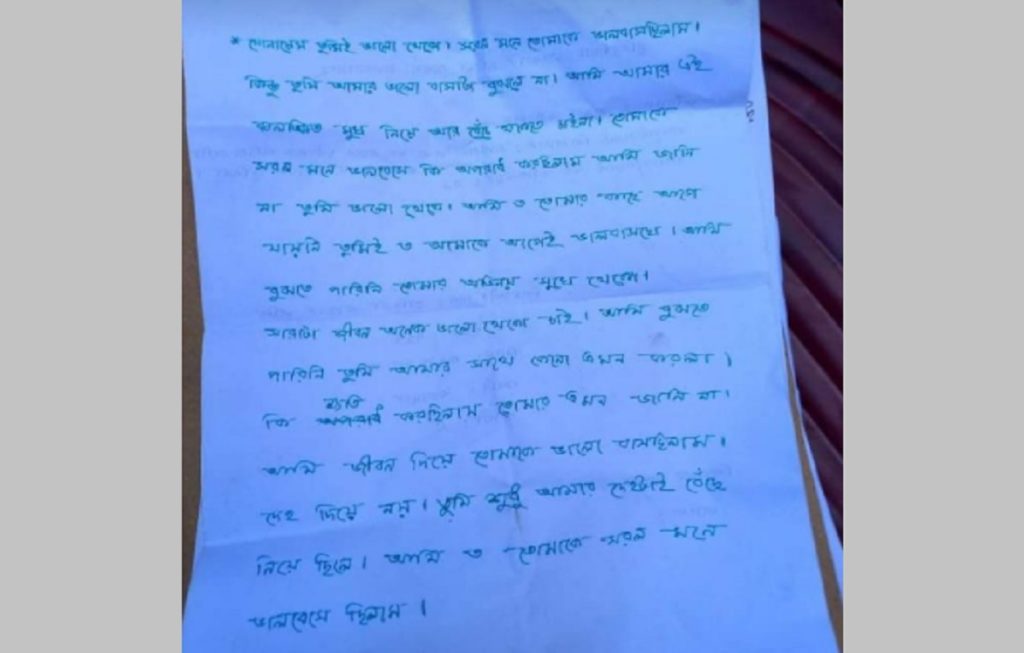 * সোনালেস তুমিই ভালো থেকো। সরল মনে তোমাকে ভালবাসছিলাম।
কিন্তু তুমি আমার ভালো বাসাটা বুঝলে না। আমি আমার এই
কলঙ্কিত মুখ নিয়ে আর বেঁচে থাকতে চাইনা। তোমাকে
সরল মনে ভালবেসে কি অপরাধ করছিলাম আমি জানি
না তুমি ভালো থেকো। আমি ত তোমার কাছে আগে
যায়নি তুমিই ত আমাকে আগেই ভালবাসছো। আমি
বুঝতে পারিনি তোমার অভিনয় মুখে থেকো।
সারাটা জীবন অনেক ভালো থেকো চাই। আমি বুঝতে
পারিনি তুমি আমার সাথে কেনো এমন করলা।
কি ক্ষতি করছিলাম তোমার এমন জানি না।
আমি জীবন দিয়ে তোমাকে ভালো বাসছিলাম।
দেহ দিয়ে নয়। তুমি শুধু আমার দেহটাই বেঁছে
নিয়ে ছিলে। আমি ত তোমাকে সরল মনে
ভালবেসে ছিলাম।